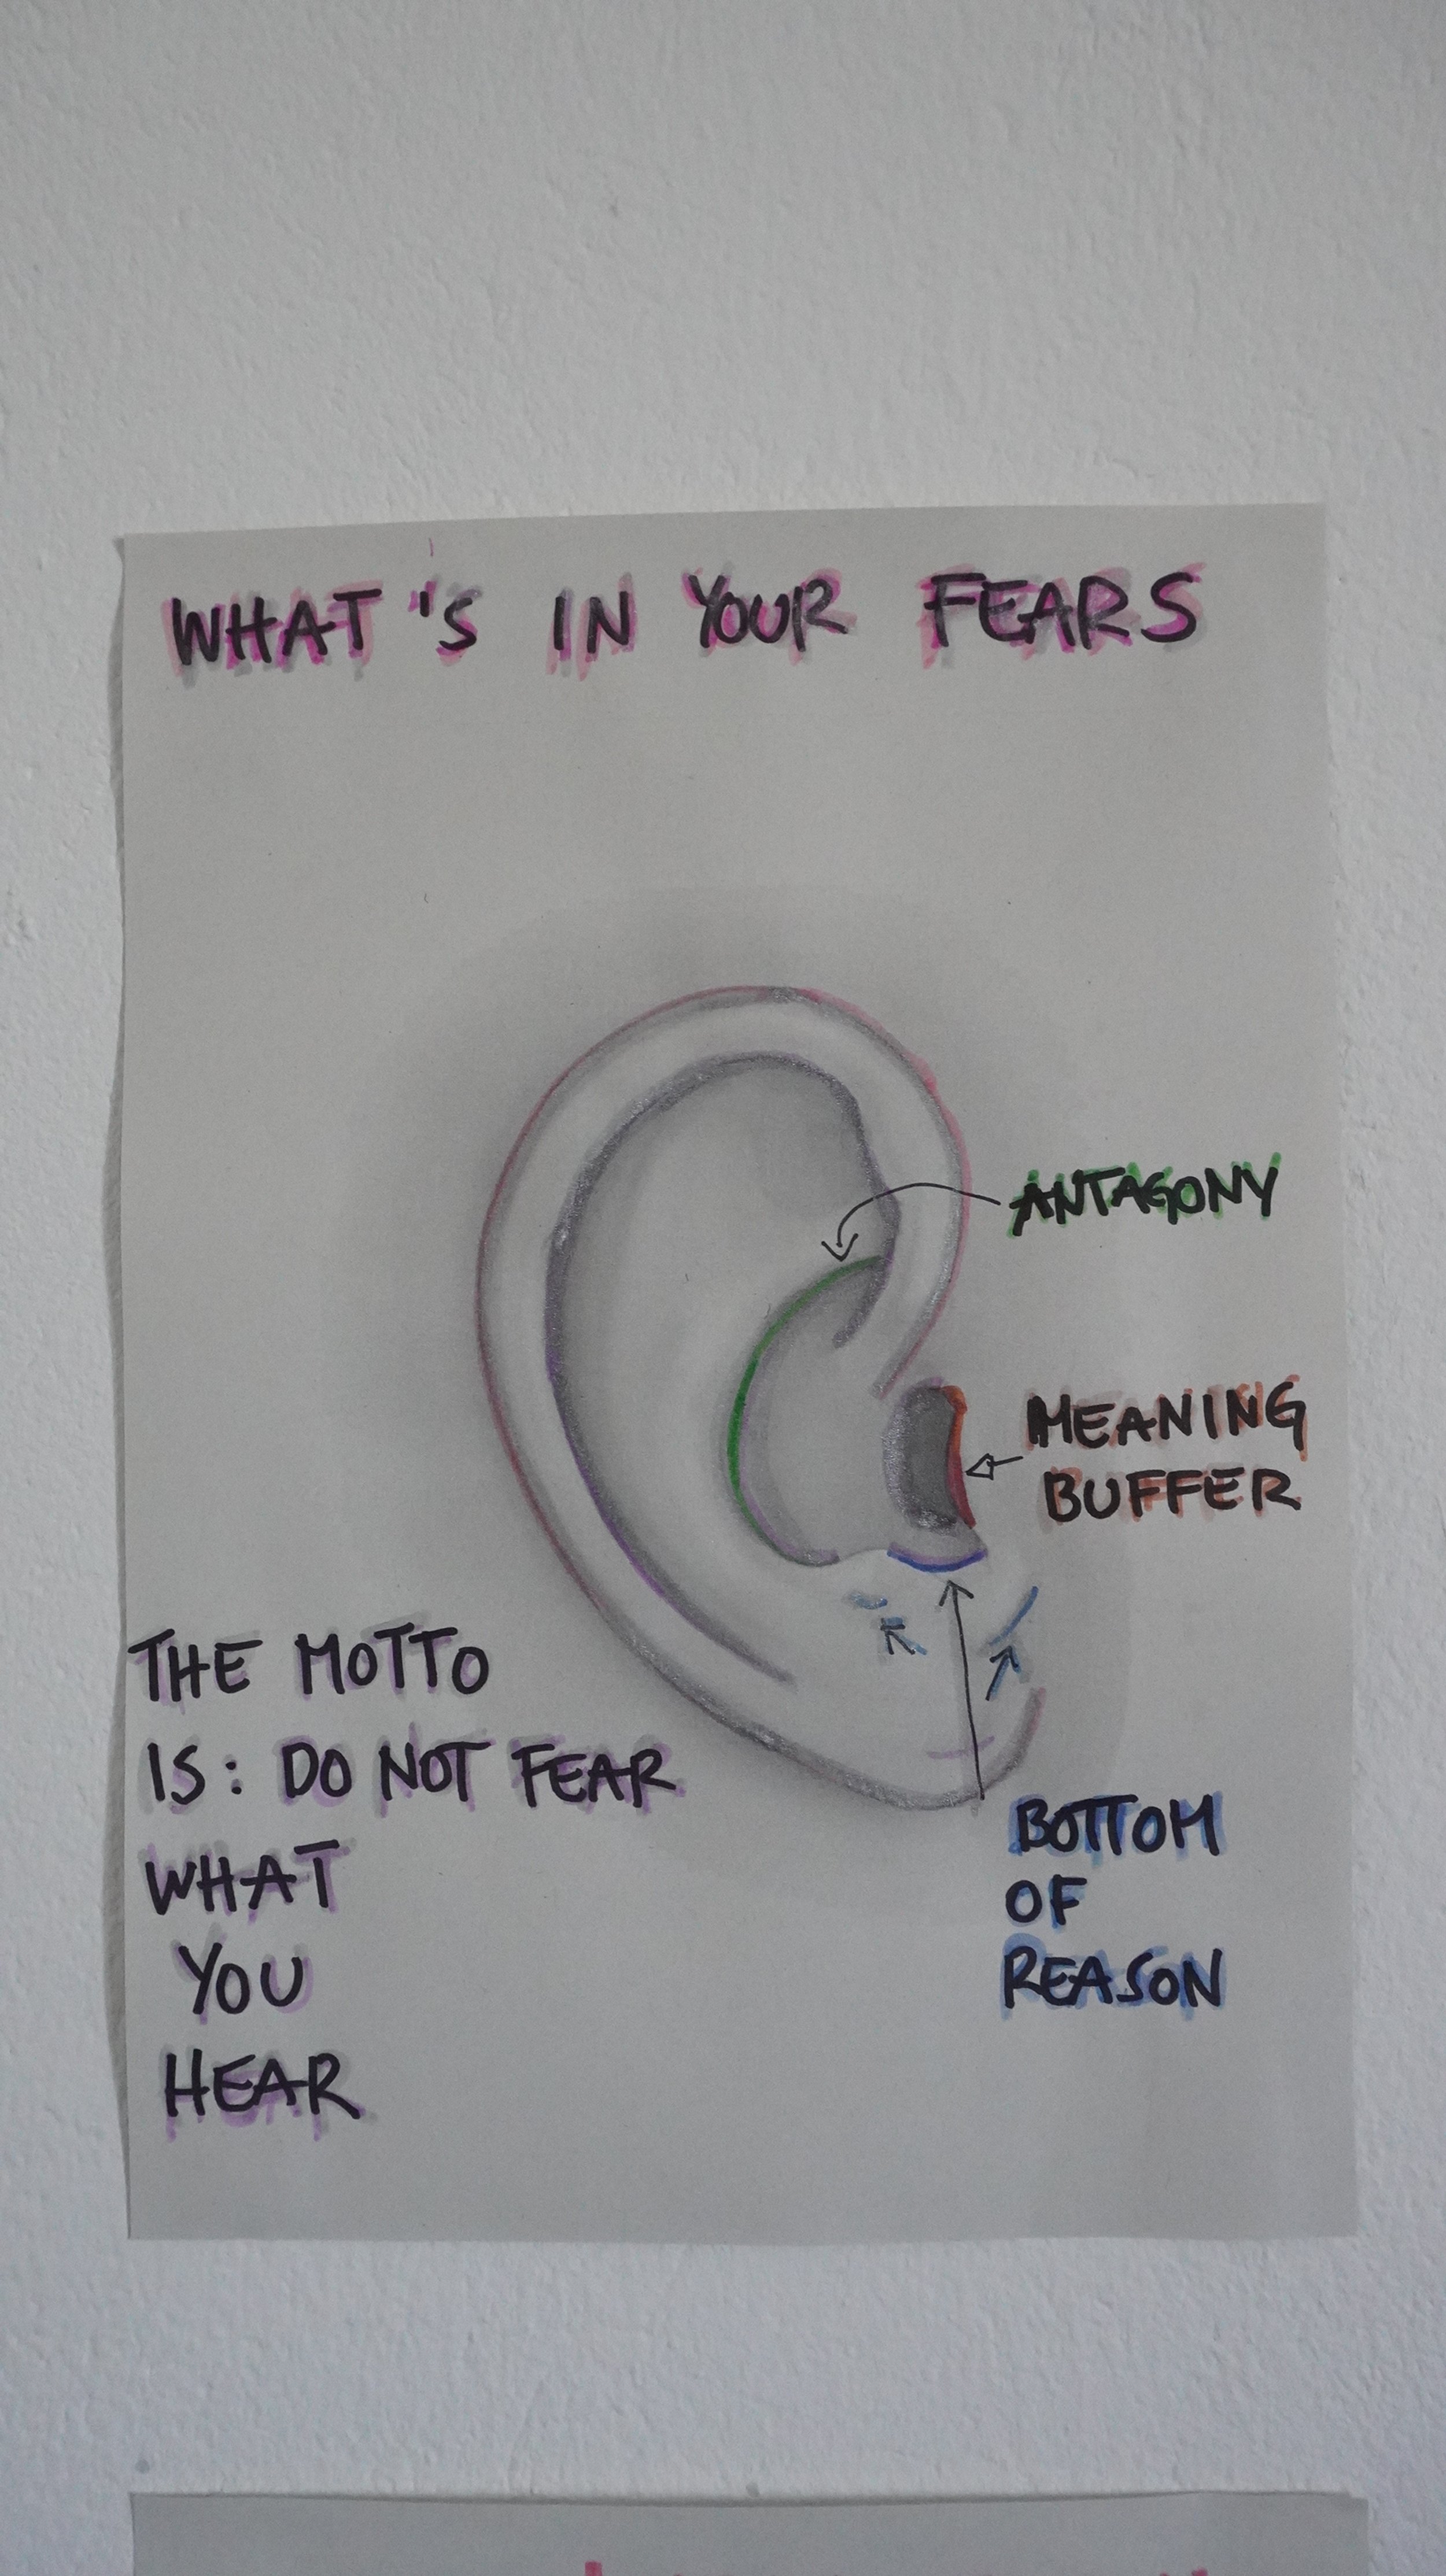 WHAT'S IN YOUR FEARS
ANTAGONY
MEANING
BUFFER
THE MOTTO
IS: DO NOT FEAR
WHAT
YOU
HEAR
BOTTOM
OF
REASON